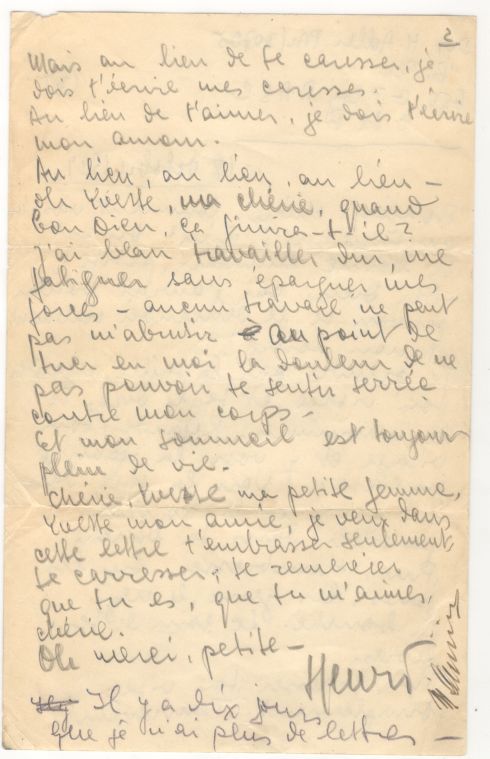 2
Mais au lieu de te caresser, je
dois t'écrire mes caresses.
Au lieu de t'aimer, je dois t'écrire
mon amour.
Au lieu, au lieu, au lieu —
oh Yvette, ma chérie, quand
bon Dieu, ça finira-t-il?
J'ai beau travailler dur, me
fatiguer sans épargner mes
forces — aucun travail ne peut
pas m'abrutir au point de
tuer en moi la douleur de ne
pas pouvoir te sentir serrée
contre mon corps —
Et mon sommeil est toujours
plein de vie.
Chérie, Yvette ma petite femme,
Yvette mon amie, je veux dans
cette lettre t'embrasser seulement,
te carresser, te remercier
que tu es, que tu m'aimes,
chérie.
Oh merci, petite —
Henri
Il y a dix jours
que je n'ai plus de lettres —